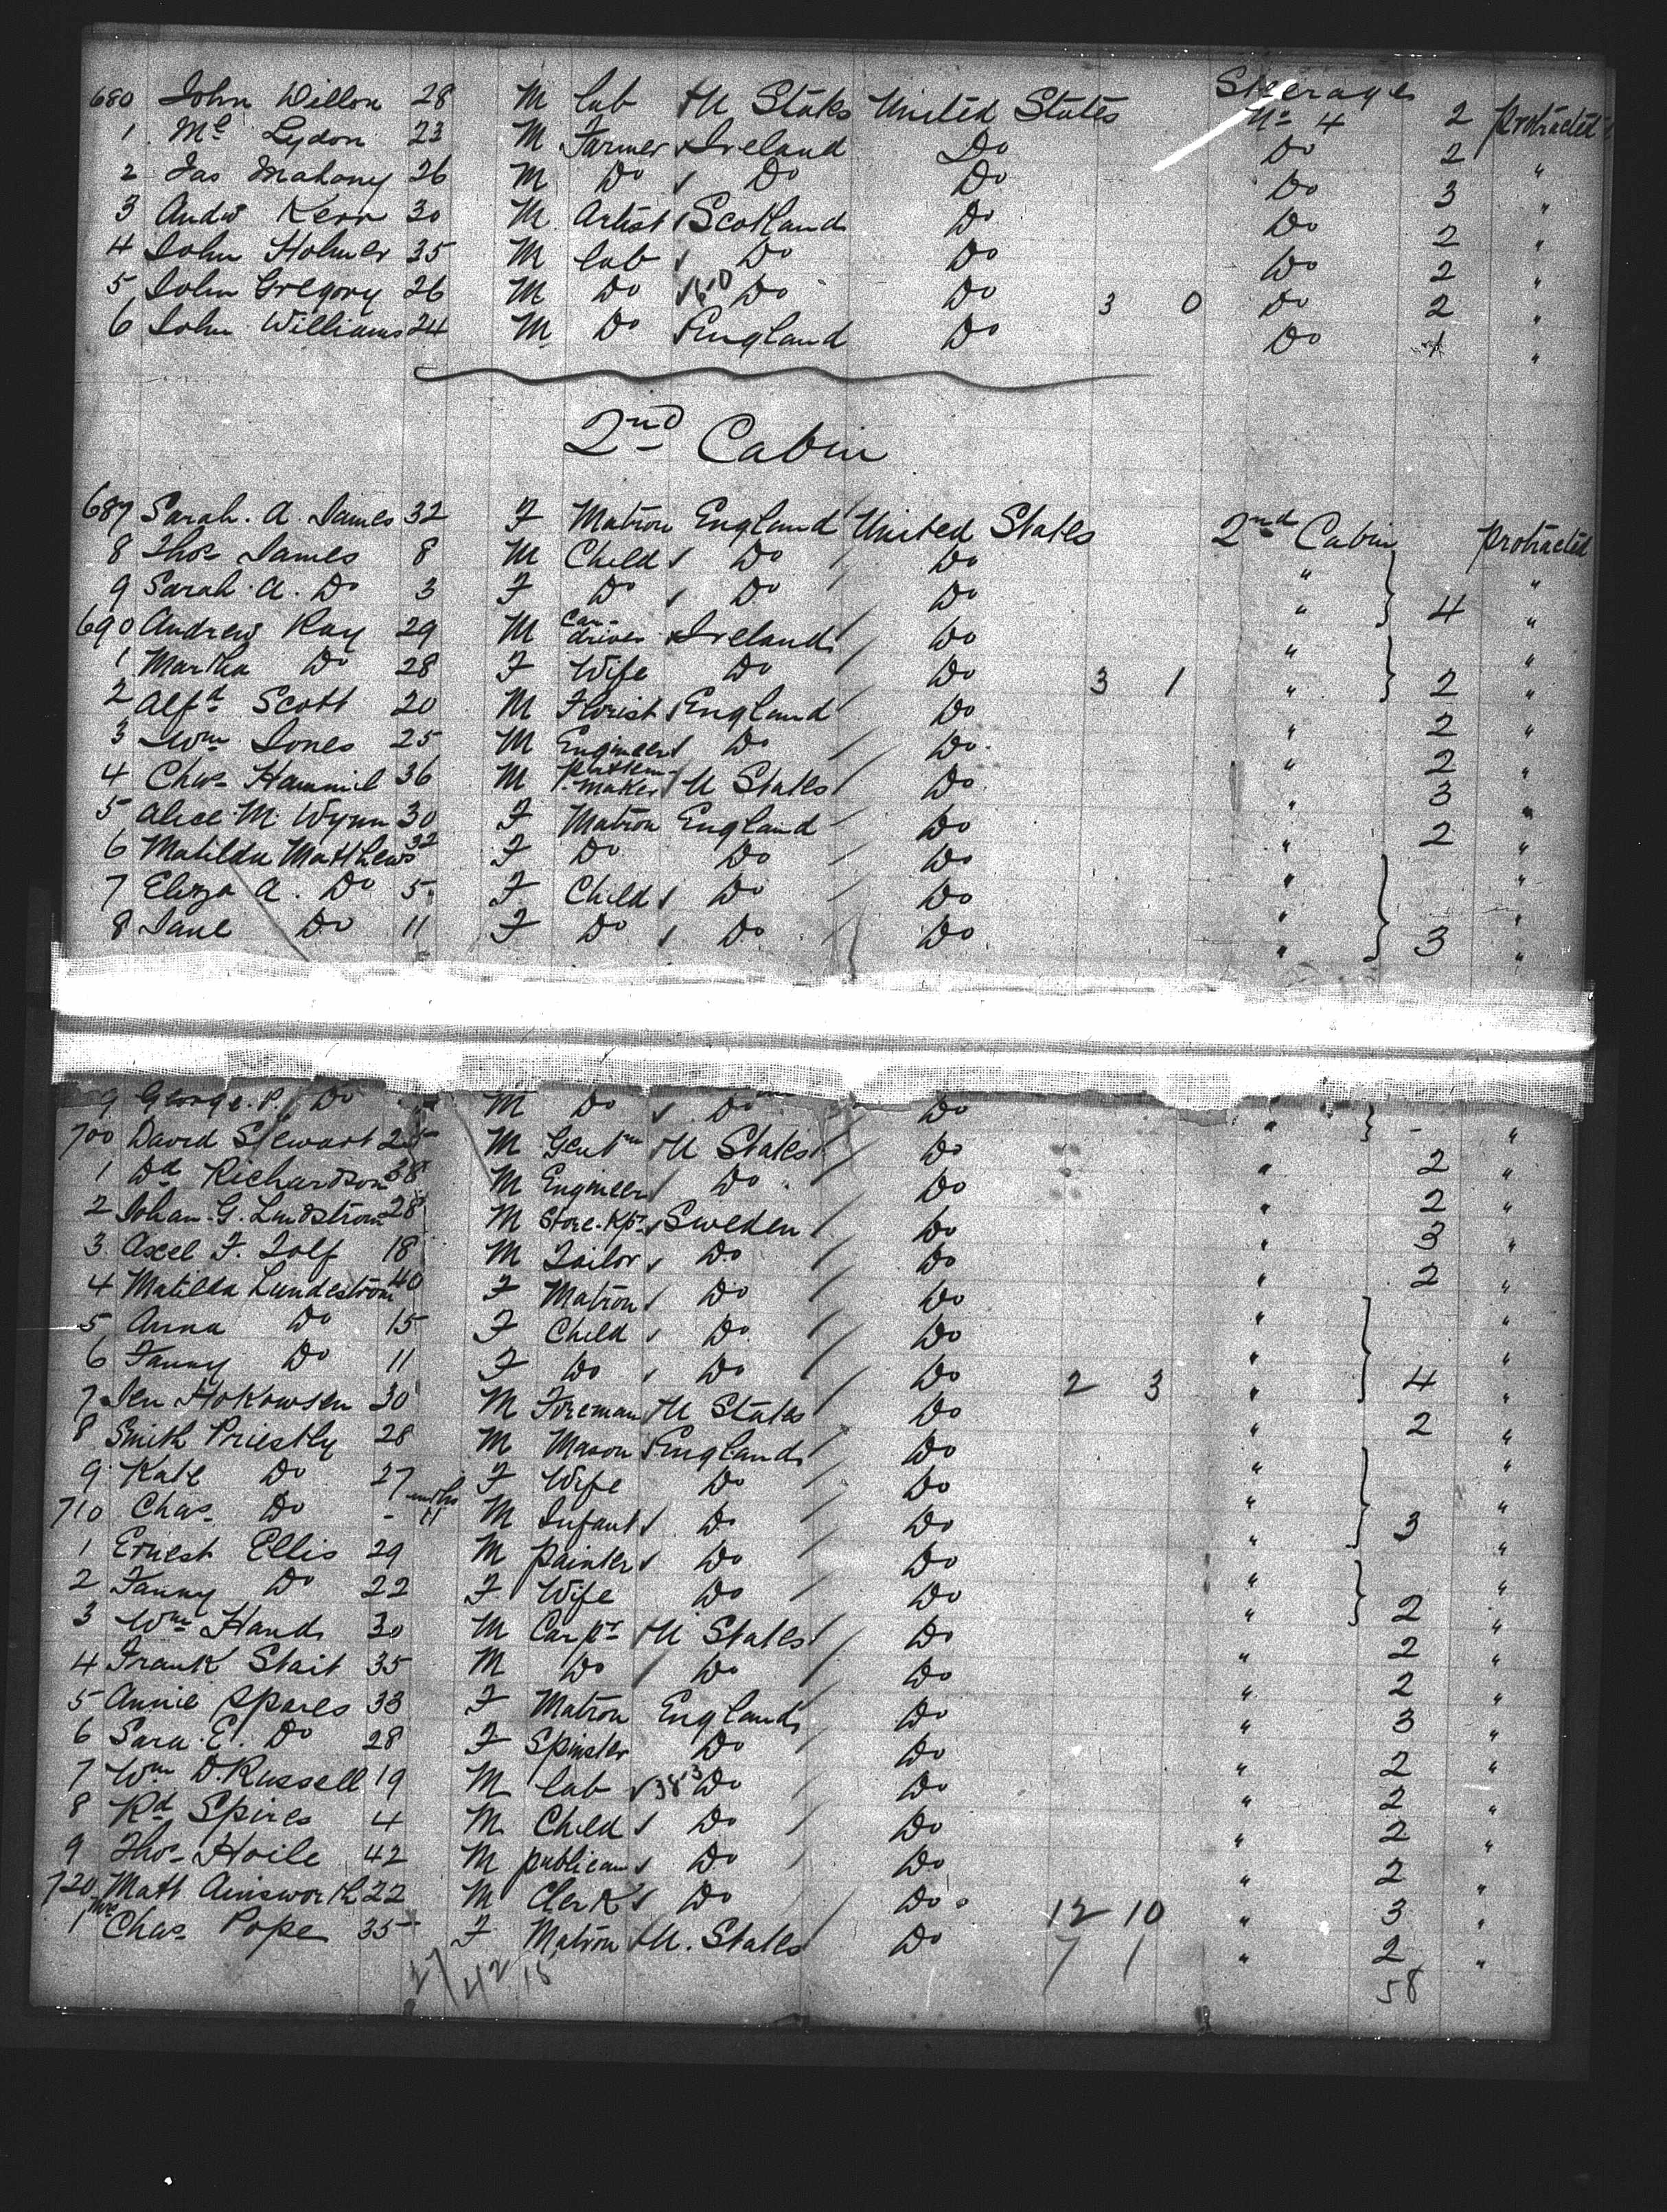 Steerage
680 John Dillon 28 M lab U States United States No 4 2 Protracted
1 Ml Lydon 23 M Farmer Ireland Do Do 2 "
2 Jas Mahony 26 M Do Do Do Do 3 "
3 Andw Kerr 30 M Artist Scotland Do Do 2 "
4 John Holmes 35 M lab Do Do Do 2 "
5 John Gregory 26 M Do Do Do 3 0 Do 2 "
6 John Williams 24 M Do England Do Do 1 "
2nd Cabin
687 Sarah. A. James 32 F Matron England United States 2nd Cabin Protracted
8 Thos James 8 M Child Do Do " "
9 Sarah. A. Do 3 F Do Do Do " 4 "
690 Andrew Ray 29 M Car-driver Ireland Do " "
1 Martha Do 28 F Wife Do Do 3 1 " 2 "
2 Alfd Scott 20 M Florist England Do " 2 "
3 Wm Jones 25 M Engineer Do Do " 2 "
4 Chas Hammil 36 M Pattern-maker U States Do " 3 "
5 Alice M. Wynn 30 F Matron England Do " 2 "
6 Matilda Matthews 32 F Do Do Do " "
7 Eliza A. Do 5 F Child Do Do " "
8 Jane Do 11 F Do Do Do " 3 "
9 George. P. Do M Do Do Do " - "
700 David Stewart 25 M Gentm U States Do " 2 "
1 Dd Richardson 38 M Engineer Do Do " 2 "
2 Johan. G. Lundstrom 28 M Store-Kpr Sweden Do " 3 "
3 Axel F. Tolf 18 M Tailor Do Do " 2 "
4 Matilda Lundestrom 40 F Matron Do Do " "
5 Anna Do 15 F Child Do Do " "
6 Fanny Do 11 F Do Do Do 2 3 " 4 "
7 Jen Hokowsen 30 M Foreman U States Do " 2 "
8 Smith Priestly 28 M Mason England Do " "
9 Kate Do 27 F Wife Do Do " "
710 Chas Do - 11 mths M Infant Do Do " 3 "
1 Ernest Ellis 29 M painter Do Do " "
2 Fanny Do 22 F Wife Do Do " 2 "
3 Wm Hands 30 M Carpr U States Do " 2 "
4 Frank Stait 35 M Do Do Do " 2 "
5 Annie Spares 33 F Matron England Do " 3 "
6 Sara. E. Do 28 F Spinster Do Do " 2 "
7 Wm D. Russell 19 M lab 383 Do Do " 2 "
8 Rd Spires 4 M Child Do Do " 2 "
9 Thos Hoile 42 M publican Do Do " 2 "
720 Matt Ainsworth 22 M Clerk Do Do 12 10 " 3 "
1 Mrs Chas Pope 35 F Matron U. States Do 7 1 " 2 "
27/42 15 58